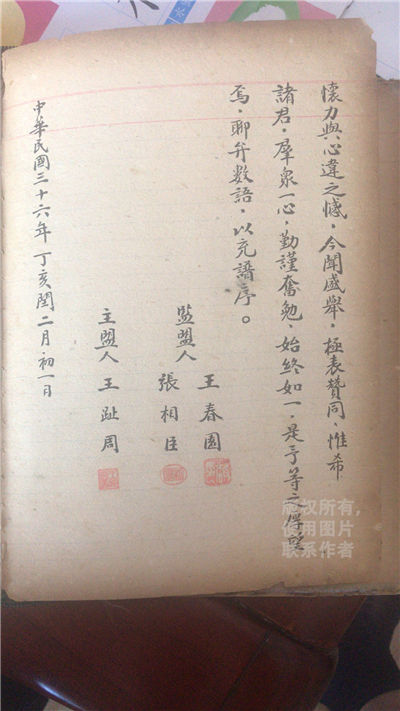 懷力與心違之憾，今聞盛舉，極表贊同，惟希
諸君，羣衆一心，勤謹奮勉，始終如一，是予等之厚望
焉，聊弁數語，以充譜序。
監盟人 王春園
張相臣
主盟人 王趾周
中華民國三十六年丁亥閏二月初一日
版权所有，
使用图片
联系作者